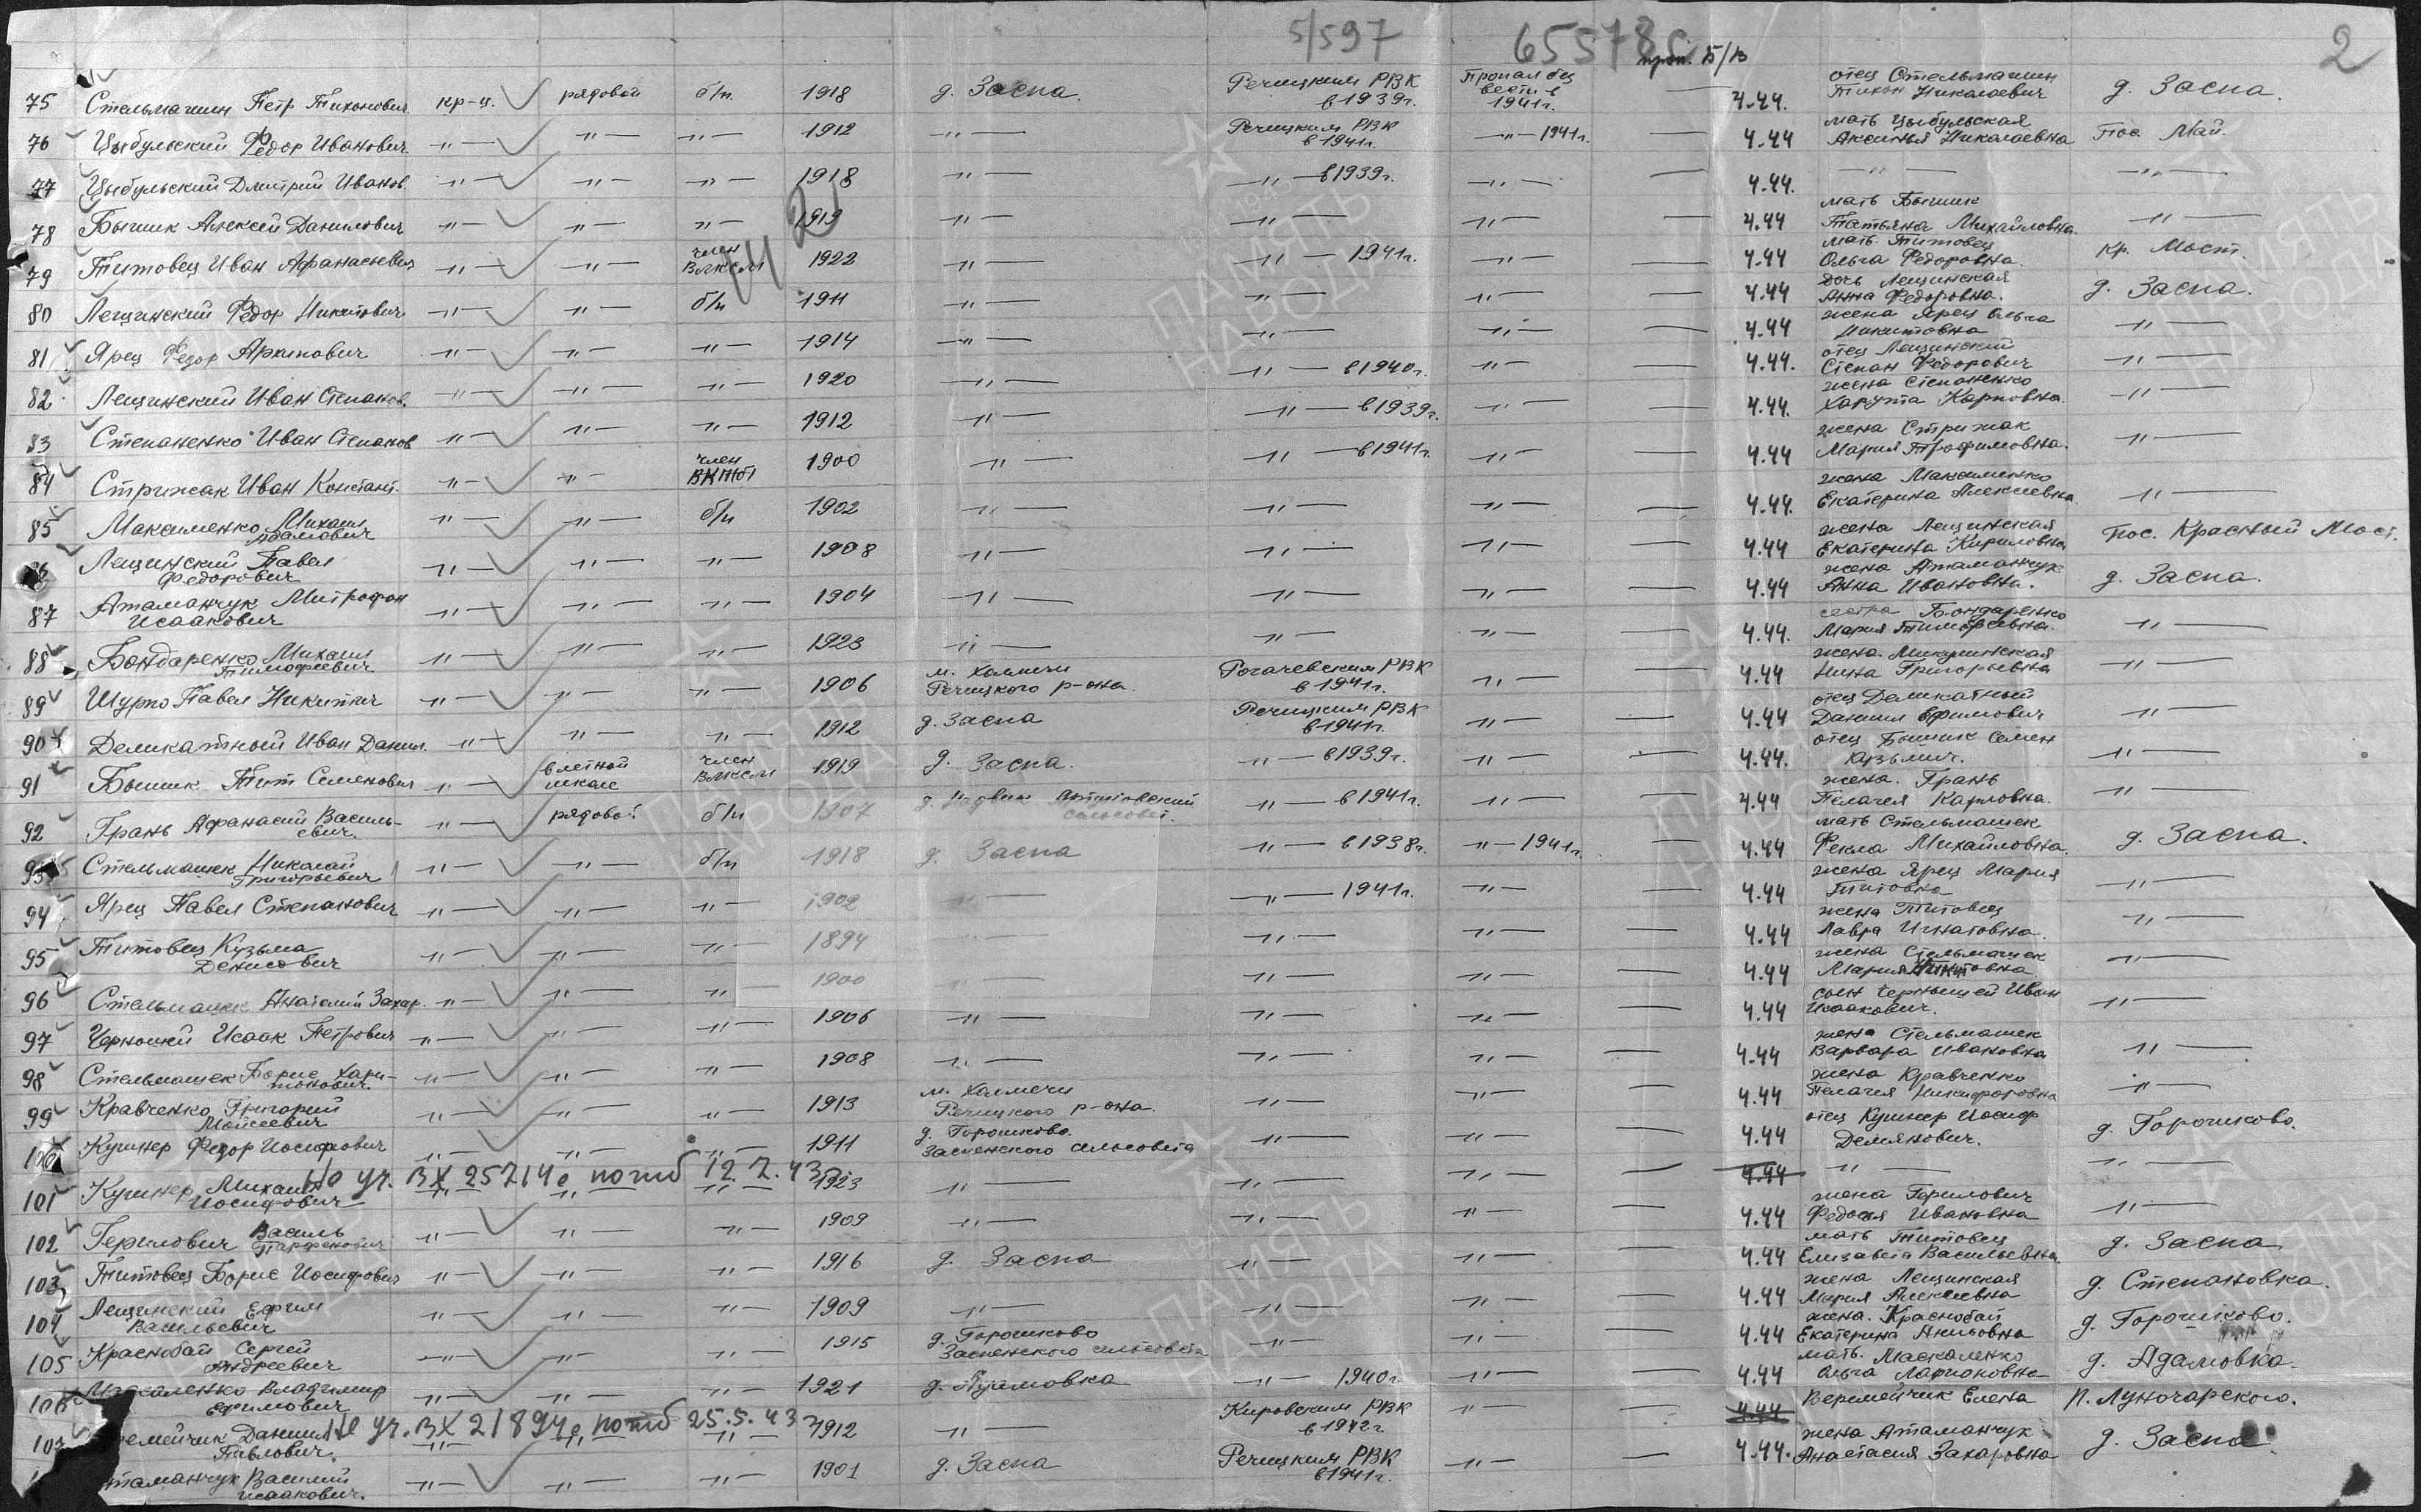 5/597 65578с 2
проп. Б/в
75 Стельмашин Петр Тихонович кр-ц. рядовой б/п 1918 д. Заспа. Речицким РВК в 1939г. Пропал без вести в 1941г. — 4.44. отец Стельмашин Тихон Николаевич д. Заспа.
76 Цыбульский Федор Иванович -"- -"- -"- 1912 -"- Речицким РВК в 1941г. -"- 1941г. — 4.44 мать Цыбульская Аксинья Николаевна Пос. Май.
77 Цыбульский Дмитрий Иванов. -"- -"- -"- 1918 -"- -"- в 1939г. -"- — 4.44. -"- -"-
78 Бышик Алексей Данилович -"- -"- -"- 1919 -"- -"- -"- — 4.44 мать Бышик Татьяна Михайловна -"-
79 Титовец Иван Афанасьевич -"- -"- член ВЛКСМ 1922 -"- -"- 1941г. -"- — 4.44 мать Титовец Ольга Федоровна. Кр. Мост.
80 Лещинский Федор Никитович -"- -"- б/п 1911 -"- -"- -"- — 4.44 дочь Лещинская Анна Федоровна. д. Заспа.
81 Ярец Федор Архипович -"- -"- -"- 1914 -"- -"- -"- — 4.44 жена Ярец Ольга Никитовна -"-
82 Лещинский Иван Степанов. -"- -"- -"- 1920 -"- -"- в 1940г. -"- — 4.44. отец Лещинский Степан Федорович -"-
83 Степаненко Иван Степанов -"- -"- -"- 1912 -"- -"- в 1939г. -"- — 4.44. жена Степаненко Карповна. -"-
84 Стрижак Иван Констант. -"- -"- член ВКП(б) 1900 -"- -"- в 1941г. -"- — 4.44 жена Стрижак Мария Трофимовна. -"-
85 Максименко Михаил Адамович -"- -"- б/п 1902 -"- -"- -"- — 4.44. жена Максименко Екатерина Алексеевна -"-
86 Лещинский Павел Федорович -"- -"- -"- 1908 -"- -"- -"- — 4.44 жена Лещинская Екатерина Кириловна Пос. Красный Мост.
87 Атаманчук Митрофан Исаакович -"- -"- -"- 1904 -"- -"- -"- — 4.44 жена Атаманчук Анна Ивановна. д. Заспа.
88 Бондаренко Михаил Тимофеевич -"- -"- -"- 1923 -"- -"- -"- — 4.44. сестра Бондаренко Мария Тимофеевна. -"-
89 Шурпо Павел Никитич -"- -"- -"- 1906 м. Холмечи Речицкого р-она. Рогачевским РВК в 1941г. -"- — 4.44 жена. Микулинская Нина Григорьевна -"-
90 Деликатный Иван Данил. -"- -"- -"- 1912 д. Заспа Речицким РВК в 1941г -"- — 4.44 отец Деликатный Даниил Ефимович -"-
91 Бышик Тит Семенович -"- в летной школе член ВЛКСМ 1919 д. Заспа. -"- в 1939г. -"- — 4.44. отец Бышик Семен Кузьмич. -"-
92 Грань Афанасий Васильевич. -"- рядовой б/п 1907 д. сельсовет. -"- в 1941г. -"- — 4.44 жена. Грань Пелагея Карповна. -"-
93 Стельмашек Николай Григорьевич -"- -"- б/п 1918 д. Заспа -"- в 1938г. -"- 1941г. — 4.44 мать Стельмашек Фекла Михайловна. д. Заспа.
94 Ярец Павел Степанович -"- -"- -"- 1902 -"- -"- 1941г. -"- — 4.44 жена Ярец Мария Титовна -"-
95 Титовец Кузьма Денисович -"- -"- -"- 1894 -"- -"- -"- — 4.44 жена Титовец Лавра Игнатовна. -"-
96 Стельмашек Анатолий Захар. -"- -"- -"- 1900 -"- -"- -"- — 4.44 жена Стельмашек Мария -"-
97 Черноцкий Исаак Петрович -"- -"- -"- 1906 -"- -"- -"- — 4.44 сын Иван Исаакович. -"-
98 Стельмашек Борис Харитонович -"- -"- -"- 1908 -"- -"- -"- — 4.44 жена Стельмашек Варвара Ивановна -"-
99 Кравченко Григорий Моисеевич -"- -"- -"- 1913 м. Холмечи Речицкого р-она. -"- -"- — 4.44 жена Кравченко Пелагея Никифоровна -"-
100 Кушнер Федор Иосифович -"- -"- -"- 1911 д. Горошково. Заспенского сельсовета -"- -"- — 4.44 отец Кушнер Иосиф Демянович. д. Горошково.
На уч. ВХ 25714с погиб 12.7.43
101 Кушнер Михаил Иосифович -"- -"- -"- 1923 -"- -"- -"- — 4.44 -"- -"-
102 Герилович Василь Парфенович -"- -"- -"- 1909 -"- -"- -"- — 4.44 жена Герилович Федосия Ивановна -"-
103 Титовец Борис Иосифович -"- -"- -"- 1916 д. Заспа -"- -"- — 4.44 мать Титовец Елизавета Васильевна. д. Заспа
104 Лещинский Ефим Васильевич -"- -"- -"- 1909 -"- -"- -"- — 4.44 жена Лещинская Мария Алексеевна д. Степановка.
105 Краснобай Сергей Андреевич -"- -"- -"- 1915 д. Горошково Заспенского сельсовета -"- -"- — 4.44 жена. Краснобай Екатерина д. Горошково.
106 Маскаленко Владимир Ефимович -"- -"- -"- 1921 д. Адамовка -"- 1940г -"- — 4.44 мать. Маскаленко Ольга Ларионовна д. Адамовка.
На уч. ВХ 21894с погиб 25.5.43
107 Веремейчик Даниил Павлович. -"- -"- -"- 1912 -"- Кировским РВК в 1942г -"- — 4.44 Веремейчик Елена П. Луночарского.
Атаманчук Василий Исаакович. -"- -"- -"- 1901 д. Заспа Речицким РВК в 1941г. -"- — 4.44. жена Атаманчук Анастасия Захаровна д. Заспа.
ПАМЯТЬ НАРОДА